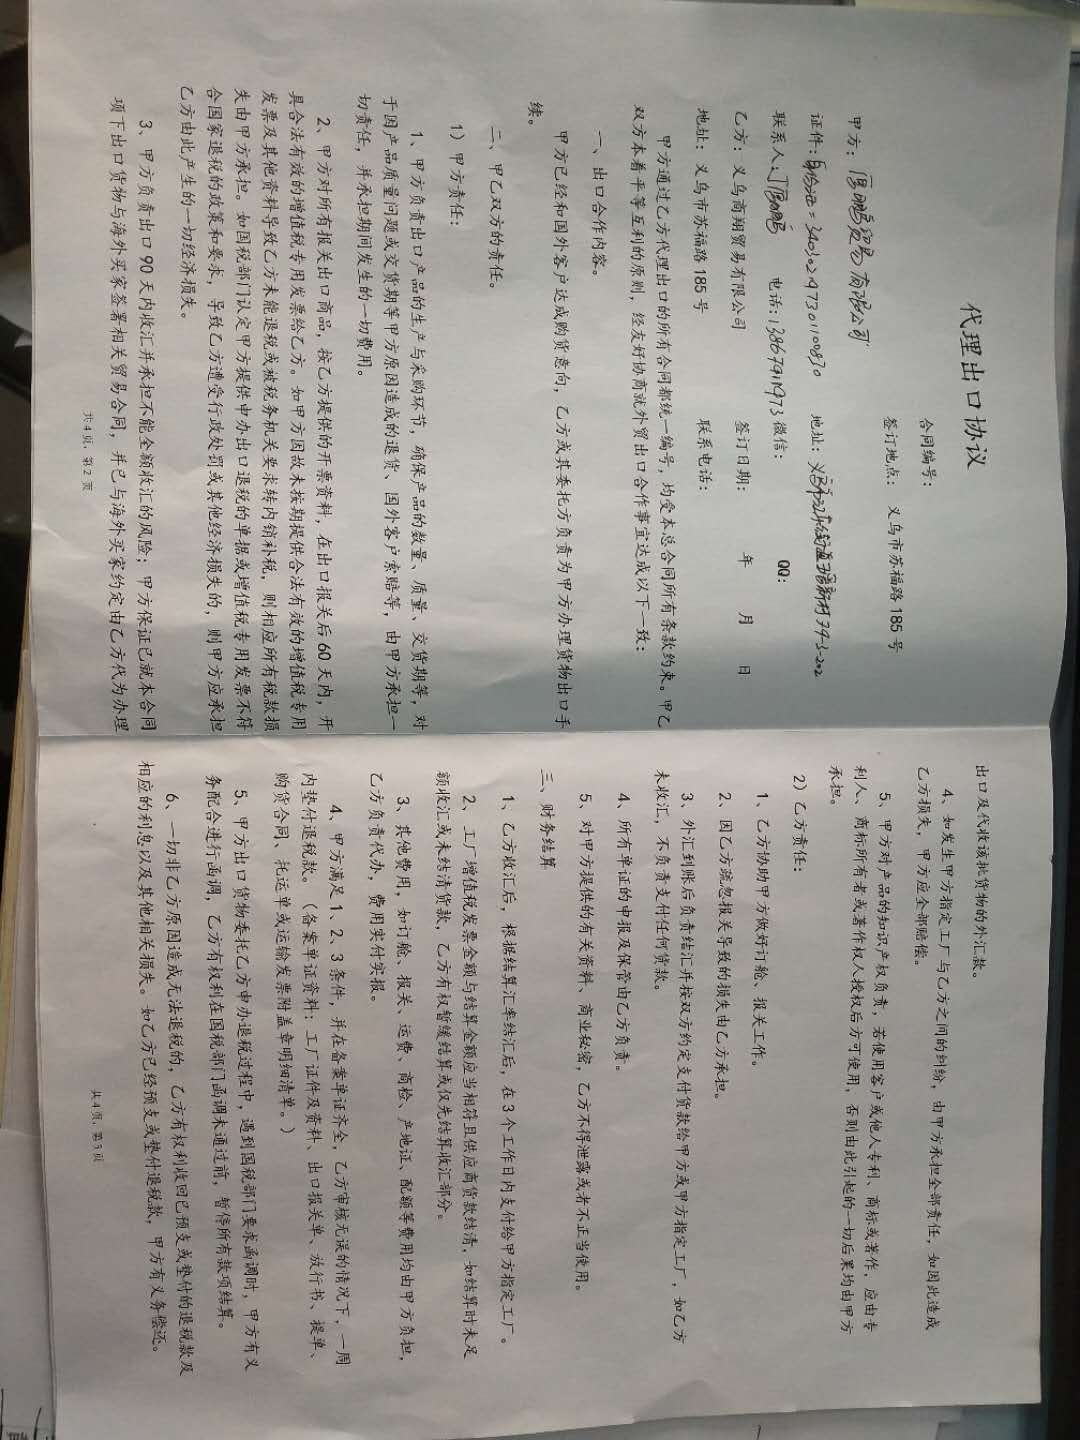 代理出口协议
合同编号：
签订地点： 义乌市苏福路 185 号
甲方： 贸易有限公司
证件： 地址：
联系人： 电话：13867911973 微信： QQ：
乙方：义乌商翔贸易有限公司 签订日期： 年 月 日
地址：义乌市苏福路 185 号 联系电话：
甲方通过乙方代理出口的所有合同都统一编号，均受本总合同所有条款约束。甲乙
双方本着平等互利的原则，经友好协商就外贸出口合作事宜达成以下一致：
一、出口合作内容。
甲方已经和国外客户达成购货意向，乙方或其委托方负责为甲方办理货物出口手
续。
二、甲乙双方的责任。
1）甲方责任：
1、甲方负责出口产品的生产与采购环节，确保产品的数量、质量、交货期等，对
于因产品质量问题或交货期等甲方原因造成的退货、国外客户索赔等，由甲方承担一
切责任，并承担期间发生的一切费用。
2、甲方对所有报关出口商品，按乙方提供的开票资料，在出口报关后 60 天内，开
具合法有效的增值税专用发票给乙方。如甲方因故未按期提供合法有效的增值税专用
发票及其他资料导致乙方未能退税或被税务机关要求转内销补税，则相应所有税款损
失由甲方承担。如国税部门认定甲方提供申办出口退税的单据或增值税专用发票不符
合国家退税的政策和要求，导致乙方遭受行政处罚或其他经济损失的，则甲方应承担
乙方由此产生的一切经济损失。
3、甲方负责出口 90 天内收汇并承担不能全额收汇的风险；甲方保证已就本合同
项下出口货物与海外买家签署相关贸易合同，并已与海外买家约定由乙方代为办理
共 4 页，第 2 页
出口及代收该批货物的外汇款。
4、如发生甲方指定工厂与乙方之间的纠纷，由甲方承担全部责任，如因此造成
乙方损失，甲方应全部赔偿。
5、甲方对产品的知识产权负责，若使用客户或他人专利、商标或著作，应由专
利人、商标所有者或著作权人授权后方可使用，否则由此引起的一切后果均由甲方
承担。
2）乙方责任：
1、乙方协助甲方做好订舱、报关工作。
2、因乙方疏忽报关导致的损失由乙方承担。
3、外汇到账后负责结汇并按双方约定支付货款给甲方或甲方指定工厂，如乙方
未收汇，不负责支付任何货款。
4、所有单证的申报及保管由乙方负责。
5、对甲方提供的有关资料、商业秘密，乙方不得泄露或者不正当使用。
三、财务结算
1、乙方收汇后，根据结算汇率结汇后，在 3 个工作日内支付给甲方指定工厂。
2、工厂增值税发票金额与结算金额应当相符且供应商货款结清，如结算时未足
额收汇或未结清货款，乙方有权暂缓结算或仅先结算收汇部分。
3、其他费用，如订舱、报关、运费、商检、产地证、配额等费用均由甲方负担，
乙方负责代办，费用实付实报。
4、甲方满足 1、2、3 条件，并在备案单证齐全，乙方审核无误的情况下，一周
内垫付退税款。（备案单证资料：工厂证件及资料、出口报关单、放行书、提单、
购货合同、托运单或运输发票附盖章明细清单。）
5、甲方出口货物委托乙方申办退税过程中，遇到国税部门要求函调时，甲方有义
务配合进行函调，乙方有权利在国税部门函调未通过前，暂停所有款项结算。
6、一切非乙方原因造成无法退税的，乙方有权利收回已预支或垫付的退税款及
相应的利息以及其他相关损失。如乙方已经预支或垫付退税款，甲方有义务偿还。
共 4 页，第 3 页